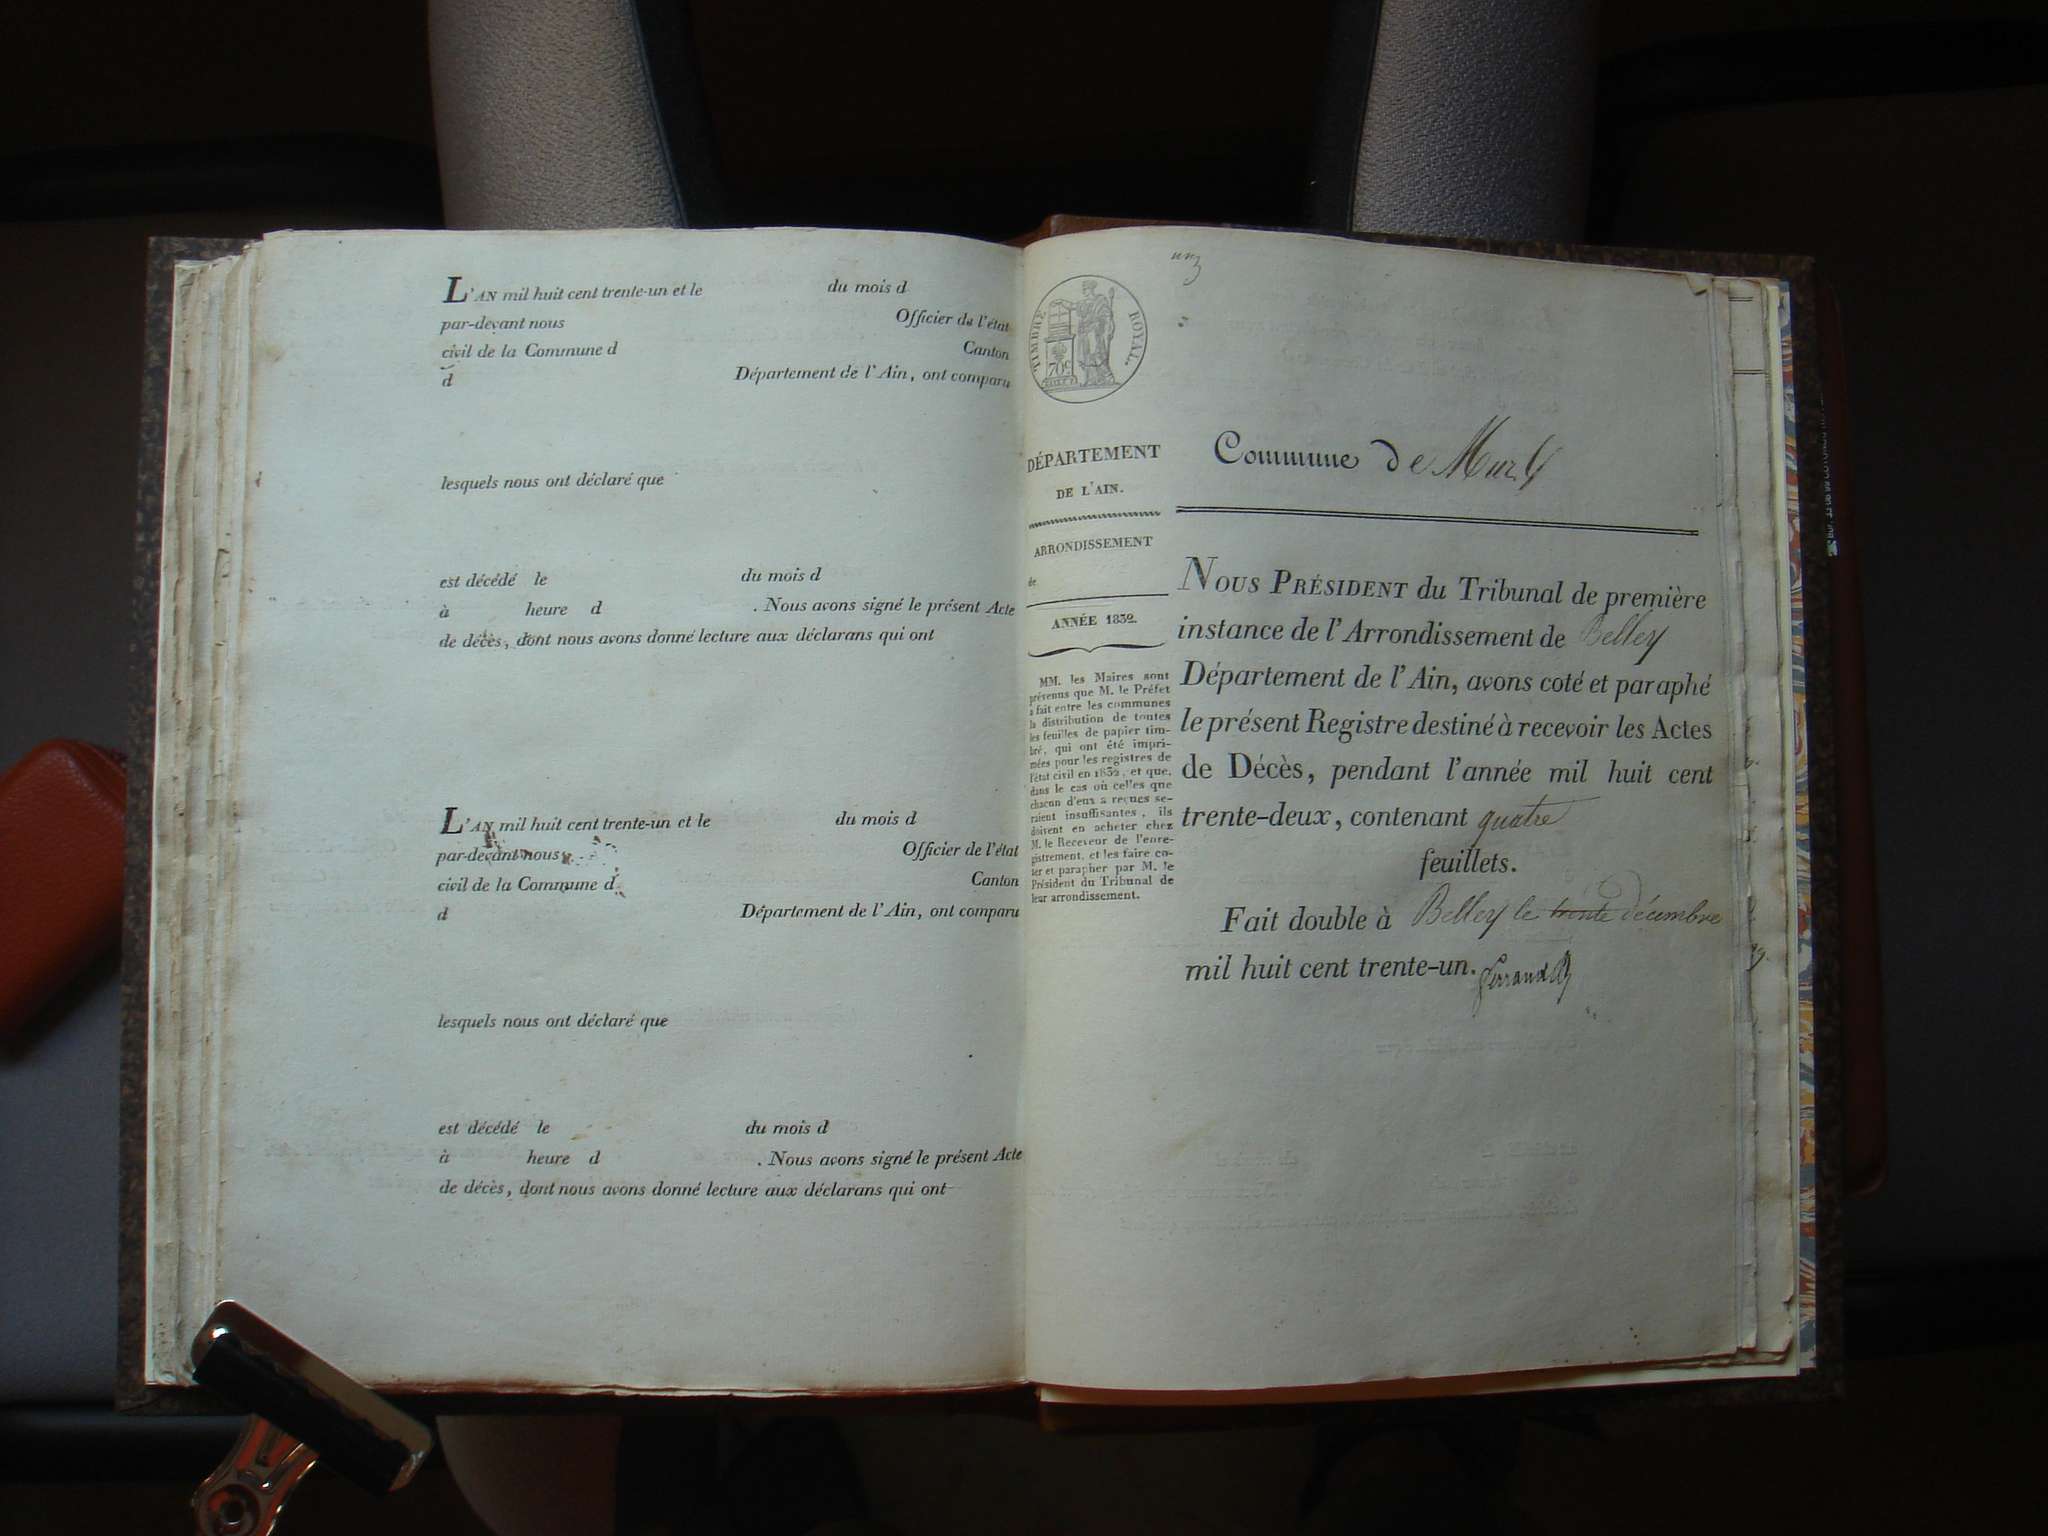 L'AN mil huit cent trente-un et le du mois d
par-devant nous Officier de l'état
civil de la Commune d Canton
d Département de l'Ain, ont comparu
lesquels nous ont déclaré que
est décédé le du mois d
à heure d . Nous avons signé le présent Acte
de décès, dont nous avons donné lecture aux déclarans qui ont
L'AN mil huit cent trente-un et le du mois d
par-devant nous Officier de l'état
civil de la Commune d Canton
d Département de l'Ain, ont comparu
lesquels nous ont déclaré que
est décédé le du mois d
à heure d . Nous avons signé le présent Acte
de décès, dont nous avons donné lecture aux déclarans qui ont
TIMBRE ROYAL.
70c
DÉPARTEMENT
DE L'AIN.
ARRONDISSEMENT
de
ANNÉE 1832.
MM. les Maires sont
prévenus que M. le Préfet
a fait entre les communes
la distribution de toutes
les feuilles de papier tim-
bré, qui ont été impri-
mées pour les registres de
l'état civil en 1832, et que,
dans le cas où celles que
chacun d'eux a reçues se-
raient insuffisantes, ils
doivent en acheter chez
M. le Receveur de l'enre-
gistrement, et les faire co-
ter et parapher par M. le
Président du Tribunal de
leur arrondissement.
Commune de
NOUS PRÉSIDENT du Tribunal de première
instance de l'Arrondissement de Belley
Département de l'Ain, avons coté et paraphé
le présent Registre destiné à recevoir les Actes
de Décès, pendant l'année mil huit cent
trente-deux, contenant quatre
feuillets.
Fait double à Belley le trente décembre
mil huit cent trente-un. Ferrand